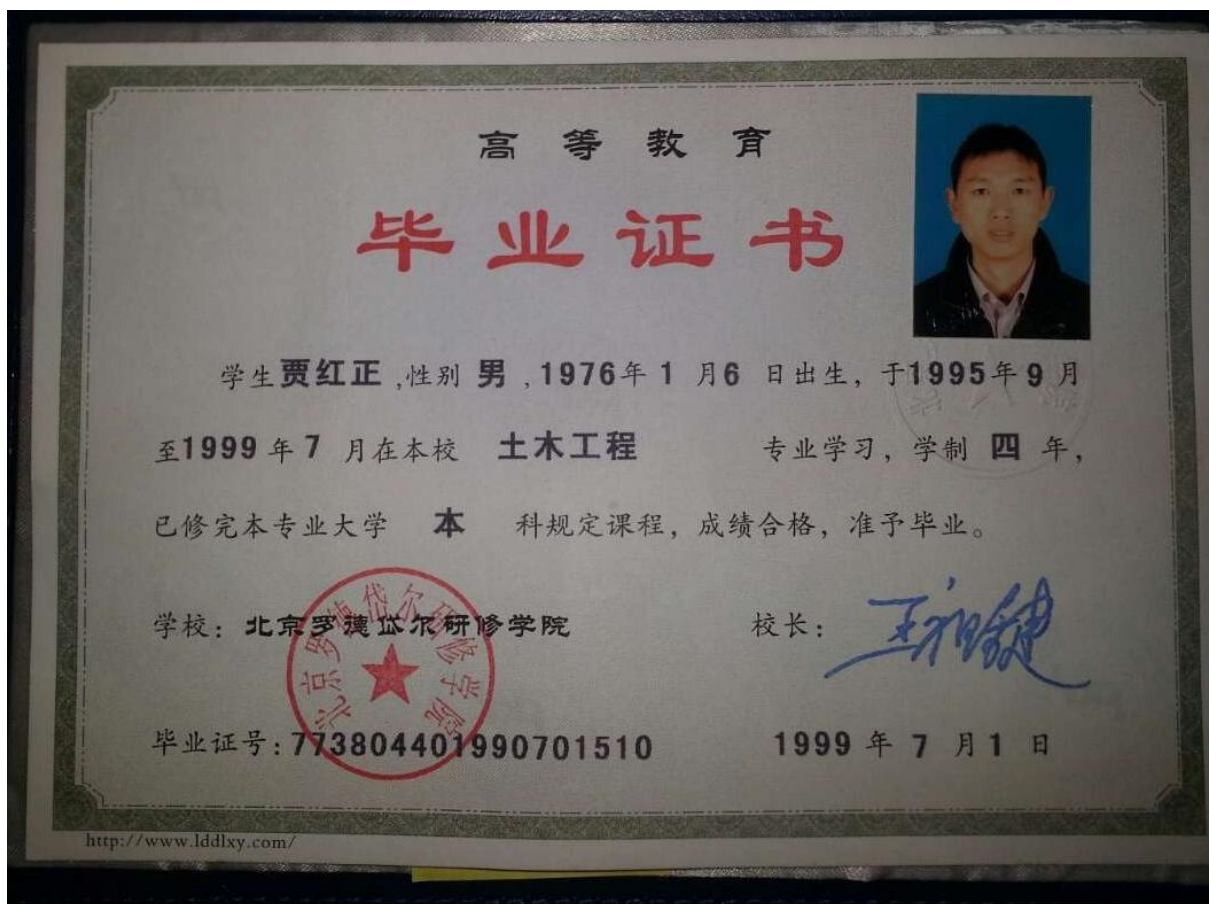 高等教育
毕业证书
学生贾红正,性别 男 , 1976年 1 月6 日出生，于1995年 9 月
至1999 年 7 月在本校 土木工程 专业学习，学制 四 年，
已修完本专业大学 本 科规定课程，成绩合格，准予毕业。
学校：北京罗德岱尔研修学院 校长：
北京罗德岱尔研修学院
毕业证号：773804401990701510 1999 年 7 月 1 日
http://www.lddlxy.com/